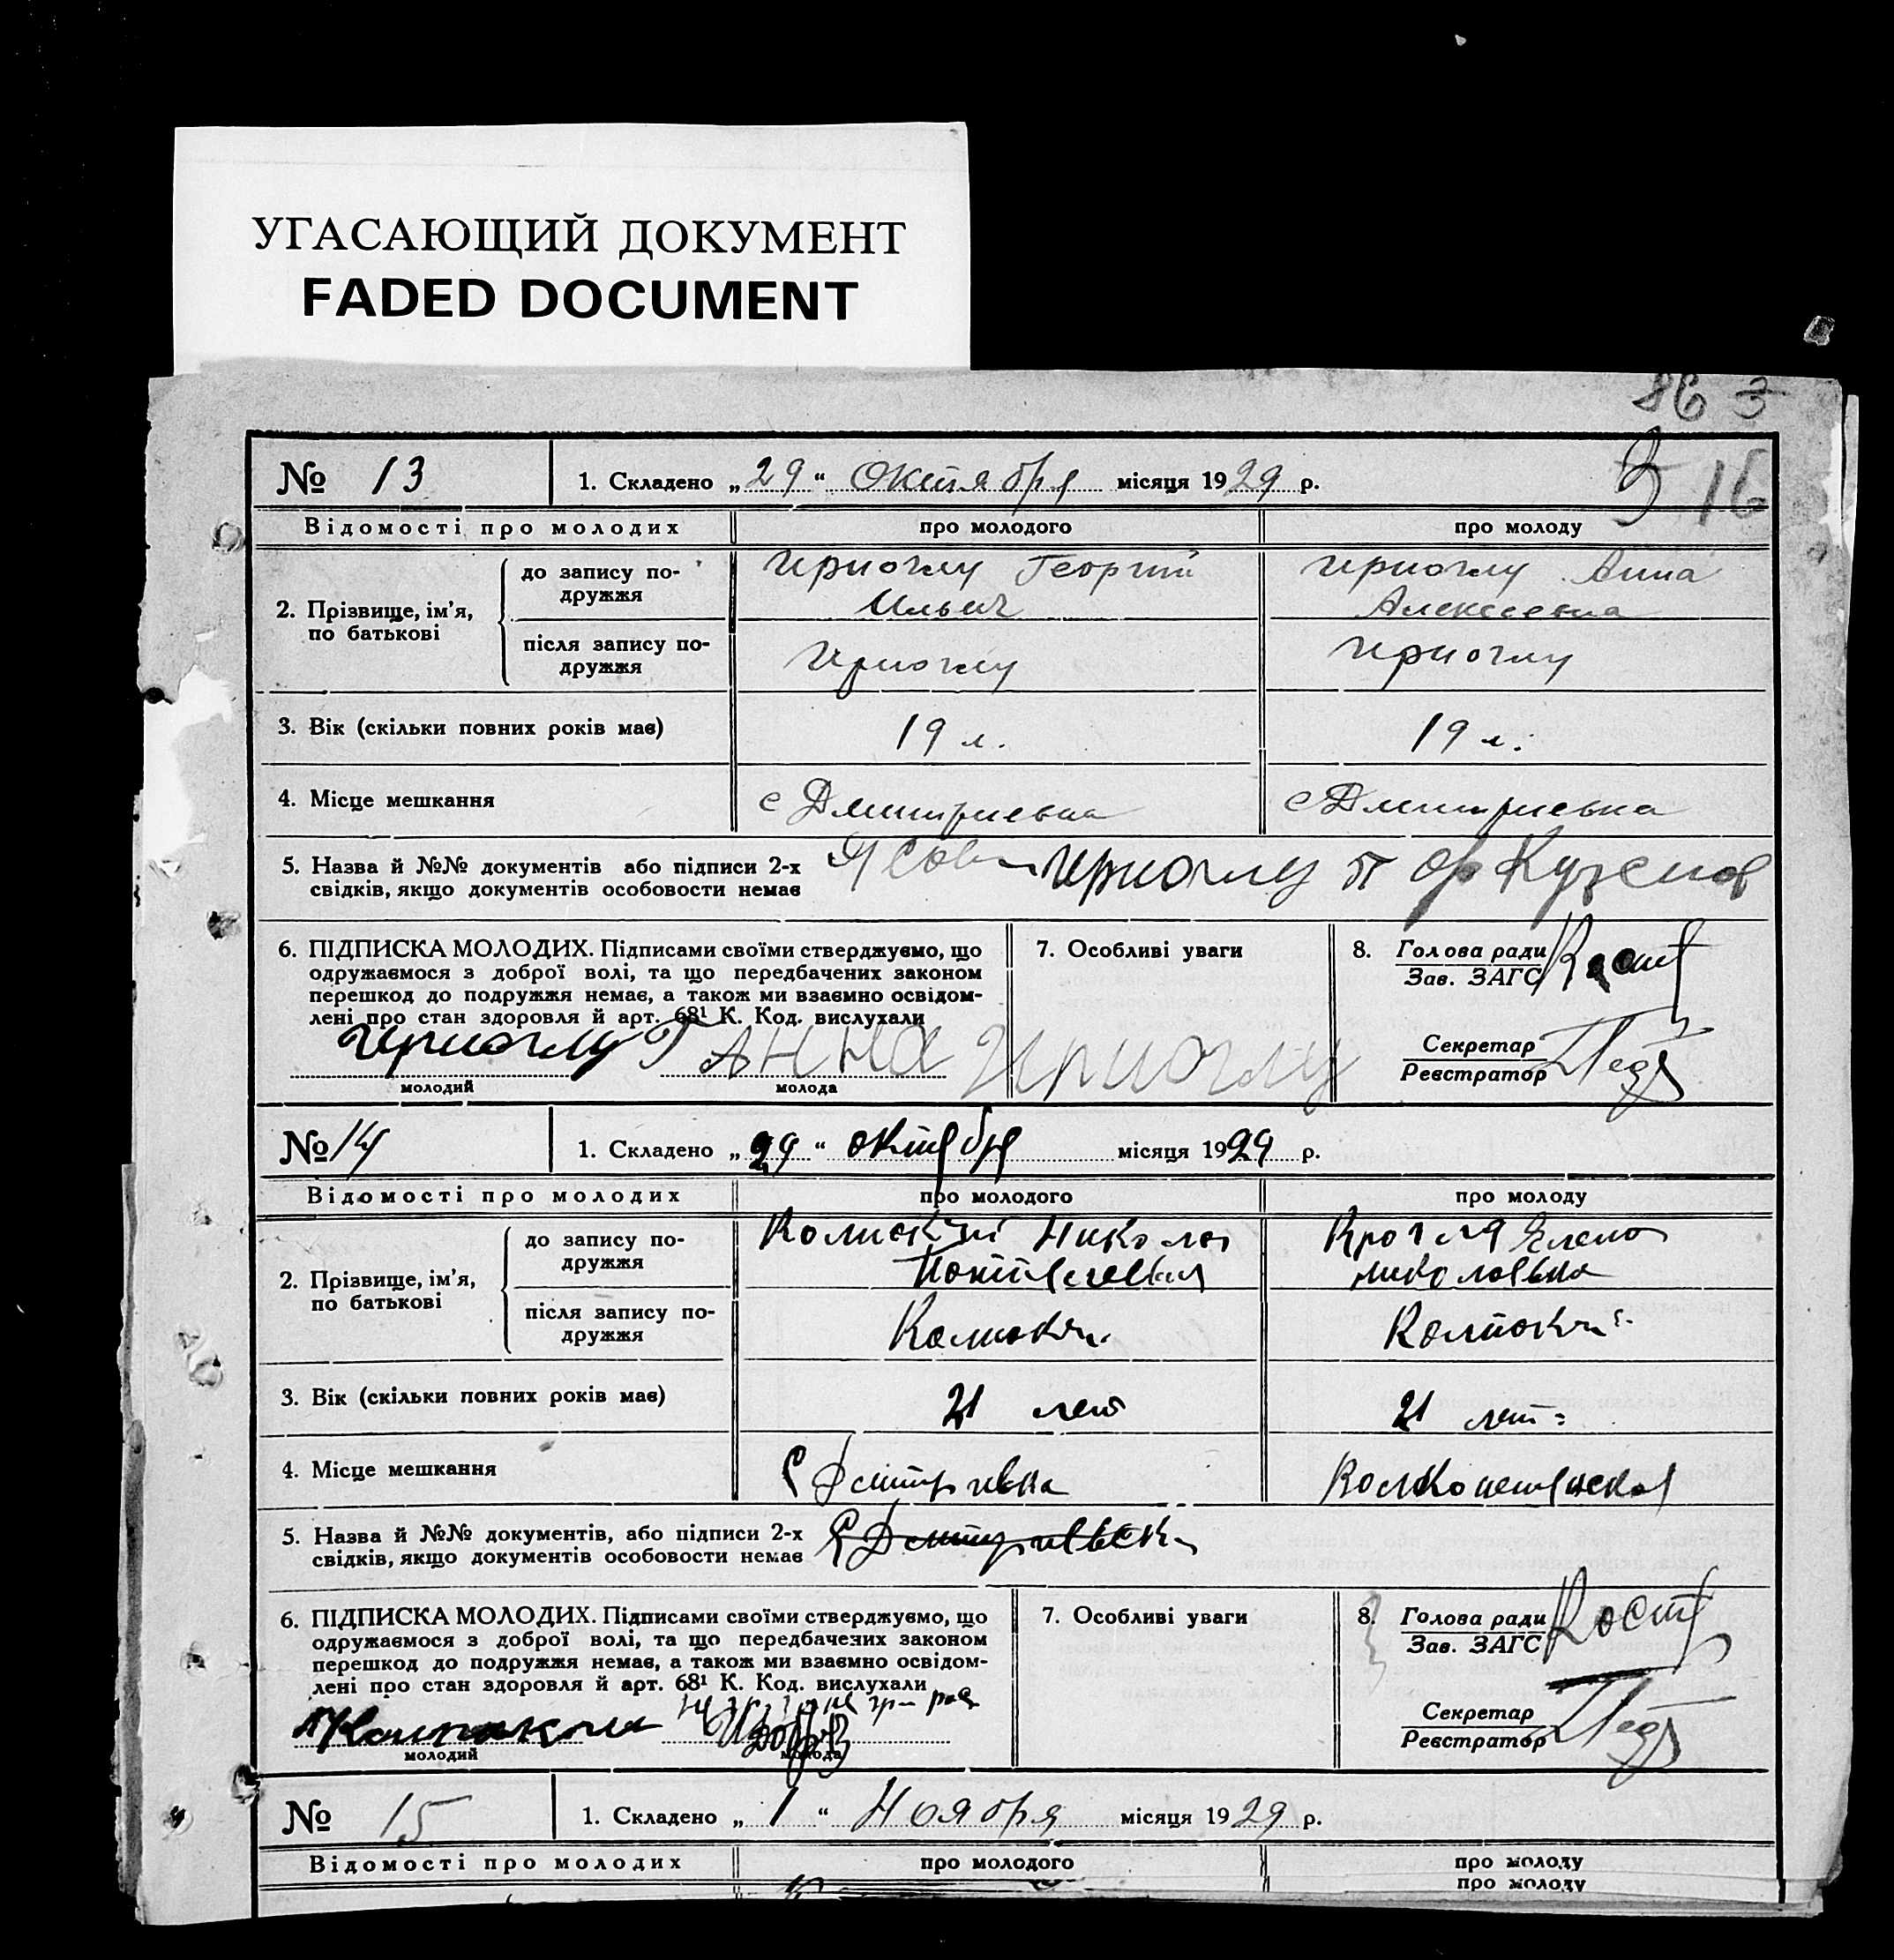 УГАСАЮЩИЙ ДОКУМЕНТ
FADED DOCUMENT
86 3
16
№ 13
1. Складено „29“ Октября місяця 1929 р.
Відомості про молодих
про молодого
про молоду
2. Прізвище, ім'я, по батькові
до запису по-
дружжя
Чериоглу Георгий
Ильич
Чериоглу Анна
Алексеевна
після запису по-
дружжя
Чериоглу
Чериоглу
3. Вік (скільки повних років має)
19 л.
19 л.
4. Місце мешкання
с Дмитриевка
с Дмитриевка
5. Назва й №№ документів або підписи 2-х
свідків, якщо документів особовости немає
Чериоглу
6. ПІДПИСКА МОЛОДИХ. Підписами своїми стверджуємо, що
одружаємося з доброї волі, та що передбачених законом
перешкод до подружжя немає, а також ми взаємно освідом-
лені про стан здоровля й арт. 68¹ К. Код. вислухали
Чериоглу Г
Анна Чериоглу
молодий
молода
7. Особливі уваги
8. Голова ради
Зав. ЗАГС
Секретар
Реєстратор
№ 14
1. Складено „29“ октября місяця 1929 р.
Відомості про молодих
про молодого
про молоду
2. Прізвище, ім'я,
по батькові
до запису по-
дружжя
Николай
Елена
Николаевна
після запису по-
дружжя
3. Вік (скільки повних років має)
21 лет
21 лет
4. Місце мешкання
С Дмитривка
5. Назва й №№ документів, або підписи 2-х
свідків, якщо документів особовости немає
6. ПІДПИСКА МОЛОДИХ. Підписами своїми стверджуємо, що
одружаємося з доброї волі, та що передбачених законом
перешкод до подружжя немає, а також ми взаємно освідом-
лені про стан здоровля й арт. 68¹ К. Код. вислухали
молодий
молода
7. Особливі уваги
8. Голова ради
Зав. ЗАГС
Секретар
Реєстратор
№ 15
1. Складено „1“ Ноября місяця 1929 р.
Відомості про молодих
про молодого
про молоду
про молоду